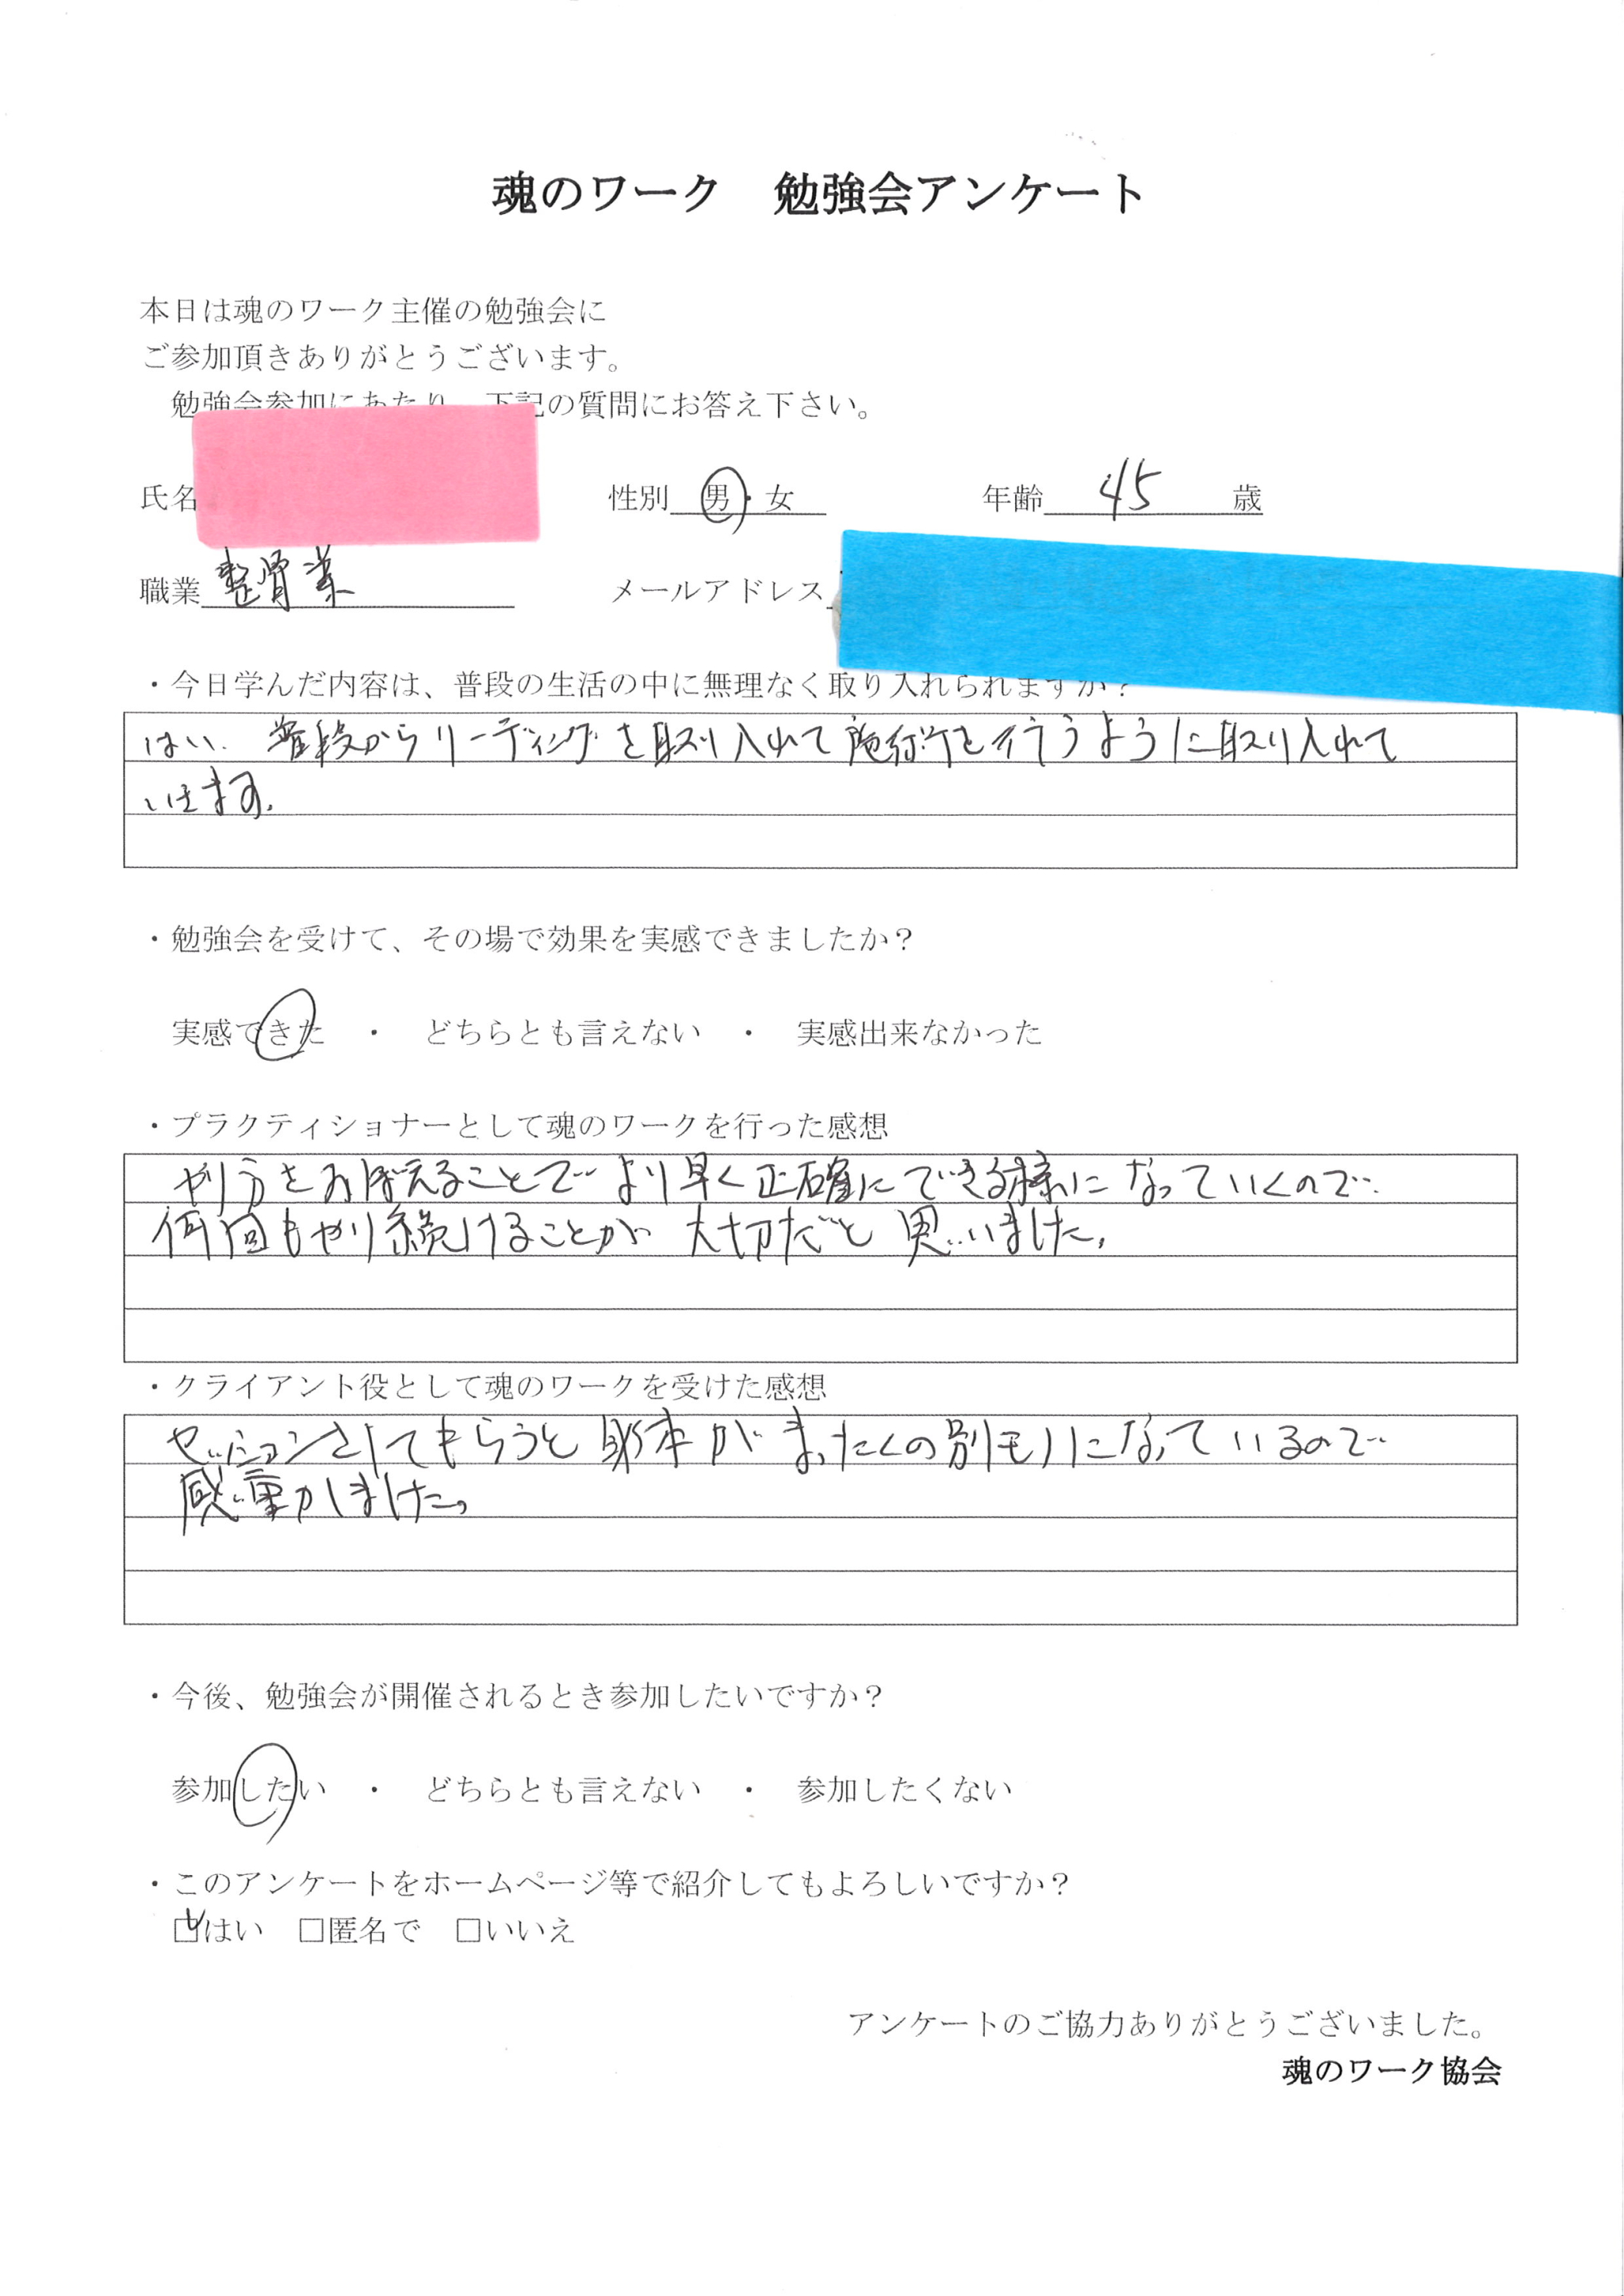 魂のワーク 勉強会アンケート
本日は魂のワーク主催の勉強会に
ご参加頂きありがとうございます。
勉強会参加にあたり、下記の質問にお答え下さい。
氏名 性別 男・女 年齢 45 歳
職業 整骨業 メールアドレス
・今日学んだ内容は、普段の生活の中に無理なく取り入れられますか？
はい、普段からリーディングを取り入れて施術を行うように取り入れて
いきます。
・勉強会を受けて、その場で効果を実感できましたか？
実感できた ・ どちらとも言えない ・ 実感出来なかった
・プラクティショナーとして魂のワークを行った感想
やり方をおぼえることでより早く正確にできる様になっていくので
何回もやり続けることが大切だと思いました。
・クライアント役として魂のワークを受けた感想
セッションをしてもらうと身体がまったくの別モノになっているので
感動しました。
・今後、勉強会が開催されるとき参加したいですか？
参加したい ・ どちらとも言えない ・ 参加したくない
・このアンケートをホームページ等で紹介してもよろしいですか？
☑はい □匿名で □いいえ
アンケートのご協力ありがとうございました。
魂のワーク協会